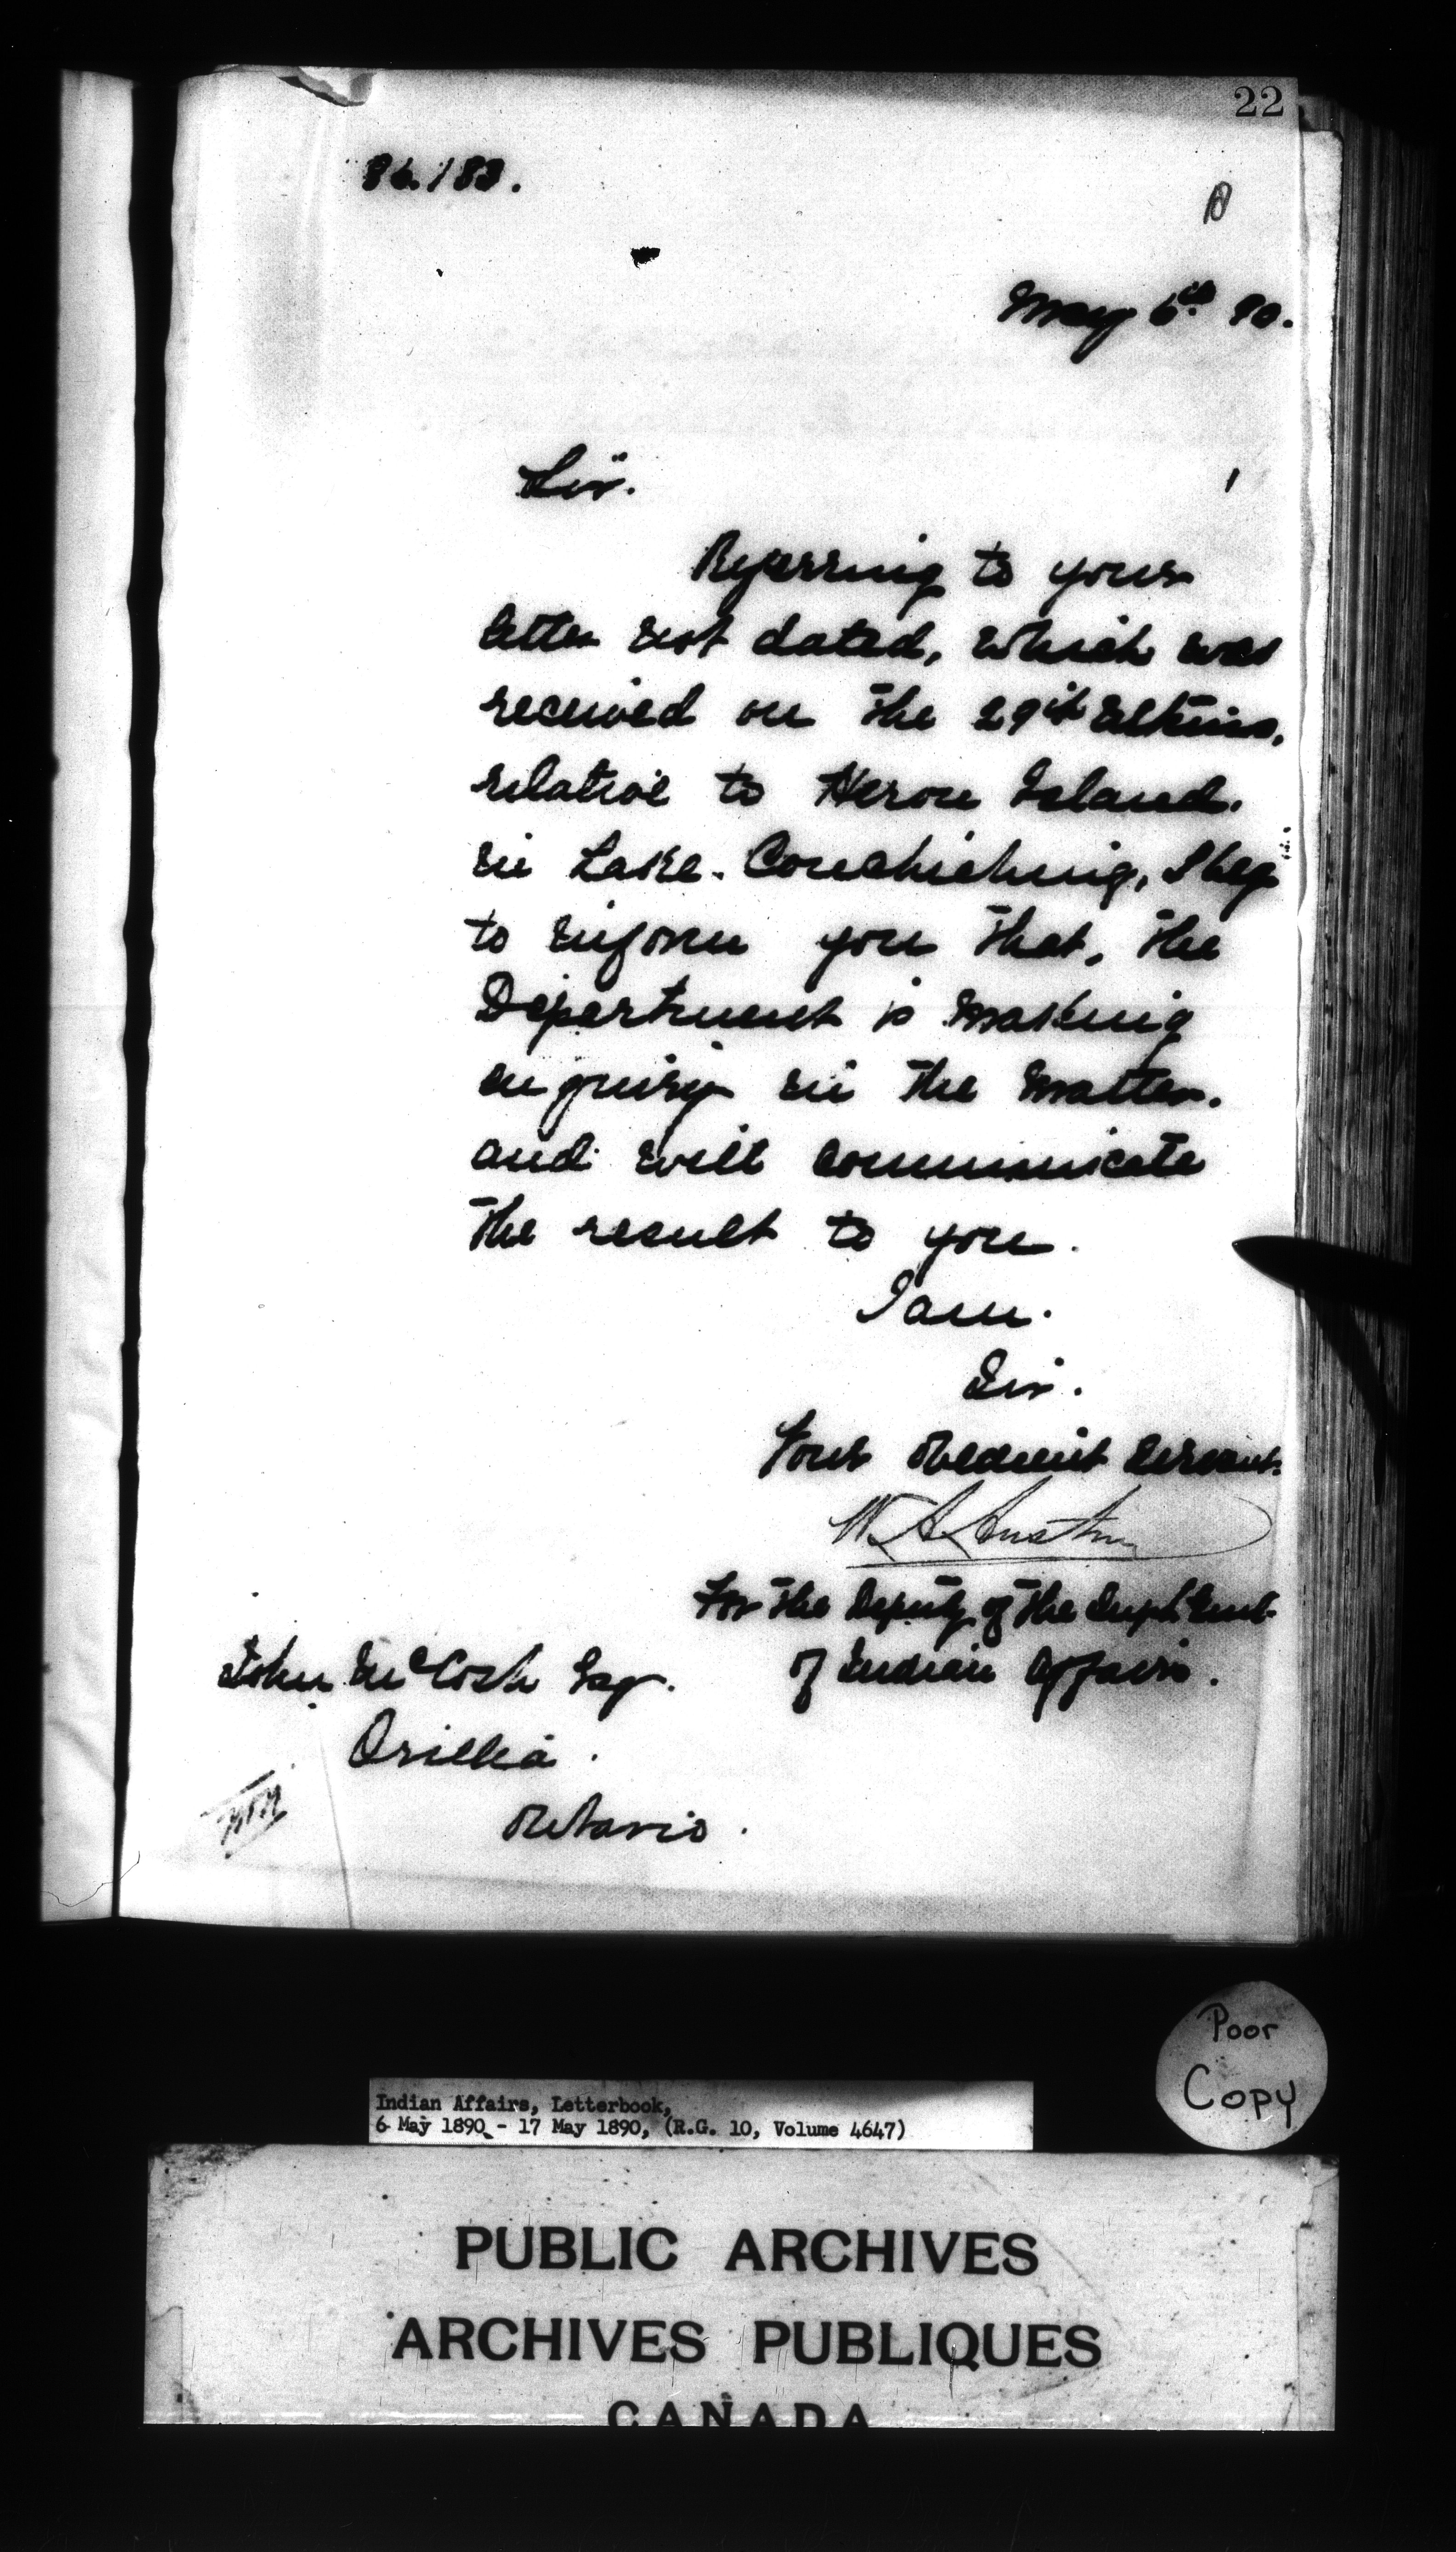 22
86.183.
May 6th 90.
Sir.
Referring to your
letter not dated, which was
received on the 29th ultimo,
relative to Heron Island.
in Lake. Couchiching, I beg
to inform you that, the
Department is making
enquiry in the matter.
and will communicate
the result to you.
I am.
Sir.
Your obedient servant.
W. A. Austin
For the Deputy of the Supt. Genl.
of Indian Affairs.
John McCosh Esq.
Orillia.
Ontario.
Poor
Copy
Indian Affairs, Letterbook,
6 May 1890 - 17 May 1890, (R.G. 10, Volume 4647)
PUBLIC ARCHIVES
ARCHIVES PUBLIQUES
CANADA